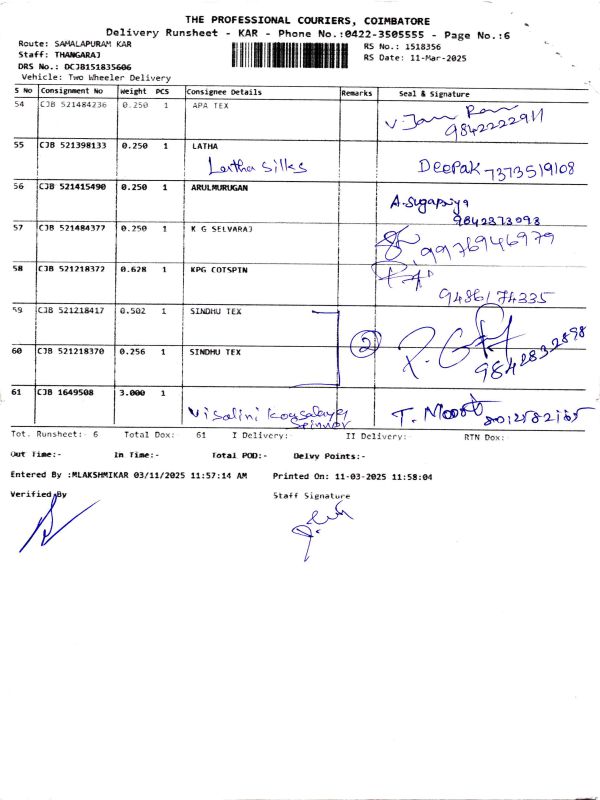 THE PROFESSIONAL COURIERS, COIMBATORE
Delivery Runsheet - KAR - Phone No.:0422-3505555 - Page No.:6
Route: SAMALAPURAM KAR
RS No.: 1518356
Staff: THANGARAJ
RS Date: 11-Mar-2025
DRS No.: DCJB151835606
Vehicle: Two Wheeler Delivery
S No Consignment No Weight PCS Consignee Details Remarks Seal & Signature
54 CJB 521484236 0.250 1 APA TEX
9842222911
55 CJB 521398133 0.250 1 LATHA
Latha Silks Deepak 7373519108
56 CJB 521415490 0.250 1 ARULMURUGAN
A.Sugapriya
9842373098
57 CJB 521484377 0.250 1 K G SELVARAJ
9976946979
58 CJB 521218372 0.628 1 KPG COTSPIN
9486174335
59 CJB 521218417 0.502 1 SINDHU TEX
2
60 CJB 521218370 0.256 1 SINDHU TEX
9842832898
61 CJB 1649508 3.000 1
Visalini
T.
Tot. Runsheet:- 6 Total Dox: 61 I Delivery:- II Delivery:- RTN Dox:-
Out Time:- In Time:- Total POD:- Delvy Points:-
Entered By :MLAKSHMIKAR 03/11/2025 11:57:14 AM Printed On: 11-03-2025 11:58:04
Verified By Staff Signature